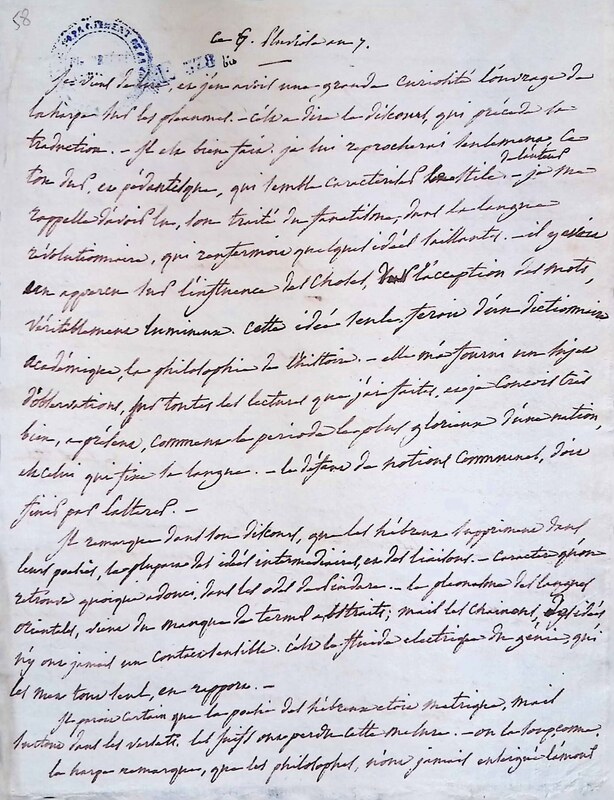 58
ce 6. Pluviose an 7.
Je viens de lire, et j'en avois une grande curiosité l'ouvrage de
la harpe sur les pseaumes. – c'est a dire le discours, qui précède la
traduction. – Il est bien fait. je lui reprocherai seulement, ce
ton dur, et pédantesque, qui semble caractériser le stile de l'auteur – je me
rappelle d'avoir lu, son traité du fanatisme, dans la langue
révolutionnaire, qui renfermoit quelques idées saillantes. – il y
un apperçu sur l'influence des choses, sur l'acception des mots,
véritablement lumineux. cette idée seule feroit d'un dictionnaire
académique, la philosophie de l'histoire. – elle m'a fourni un sujet
d'observations, sur toutes les lectures que j'ai faites, et je concois très
bien, a présent, comment la période la plus glorieuse d'une nation,
est celui qui fixe la langue. – le de notions communes, doit
finir par l'altérer. –
Il remarque dans son discours, que les hébreux suppriment dans
leurs poësies, la pluspart des idées intermédiaires, et des liaisons. – caractere qu'on
retrouve quoique adouci, dans les odes de Pindare. – le pleonasme des langues
orientales, vient du manque de termes abstraits; mais les chainons des idées
n'y ont jamais un contact sensible. c'est le fluide electrique du génie, qui
les met tout seul, en rapport. –
Il paroit certain que la poësie des hébreux etoit metrique, mais
surtout dans les versets. les juifs ont perdu cette mesure. – on la soupçonne.
la harpe remarque, que les philosophes, n'ont jamais enseigné l'amour